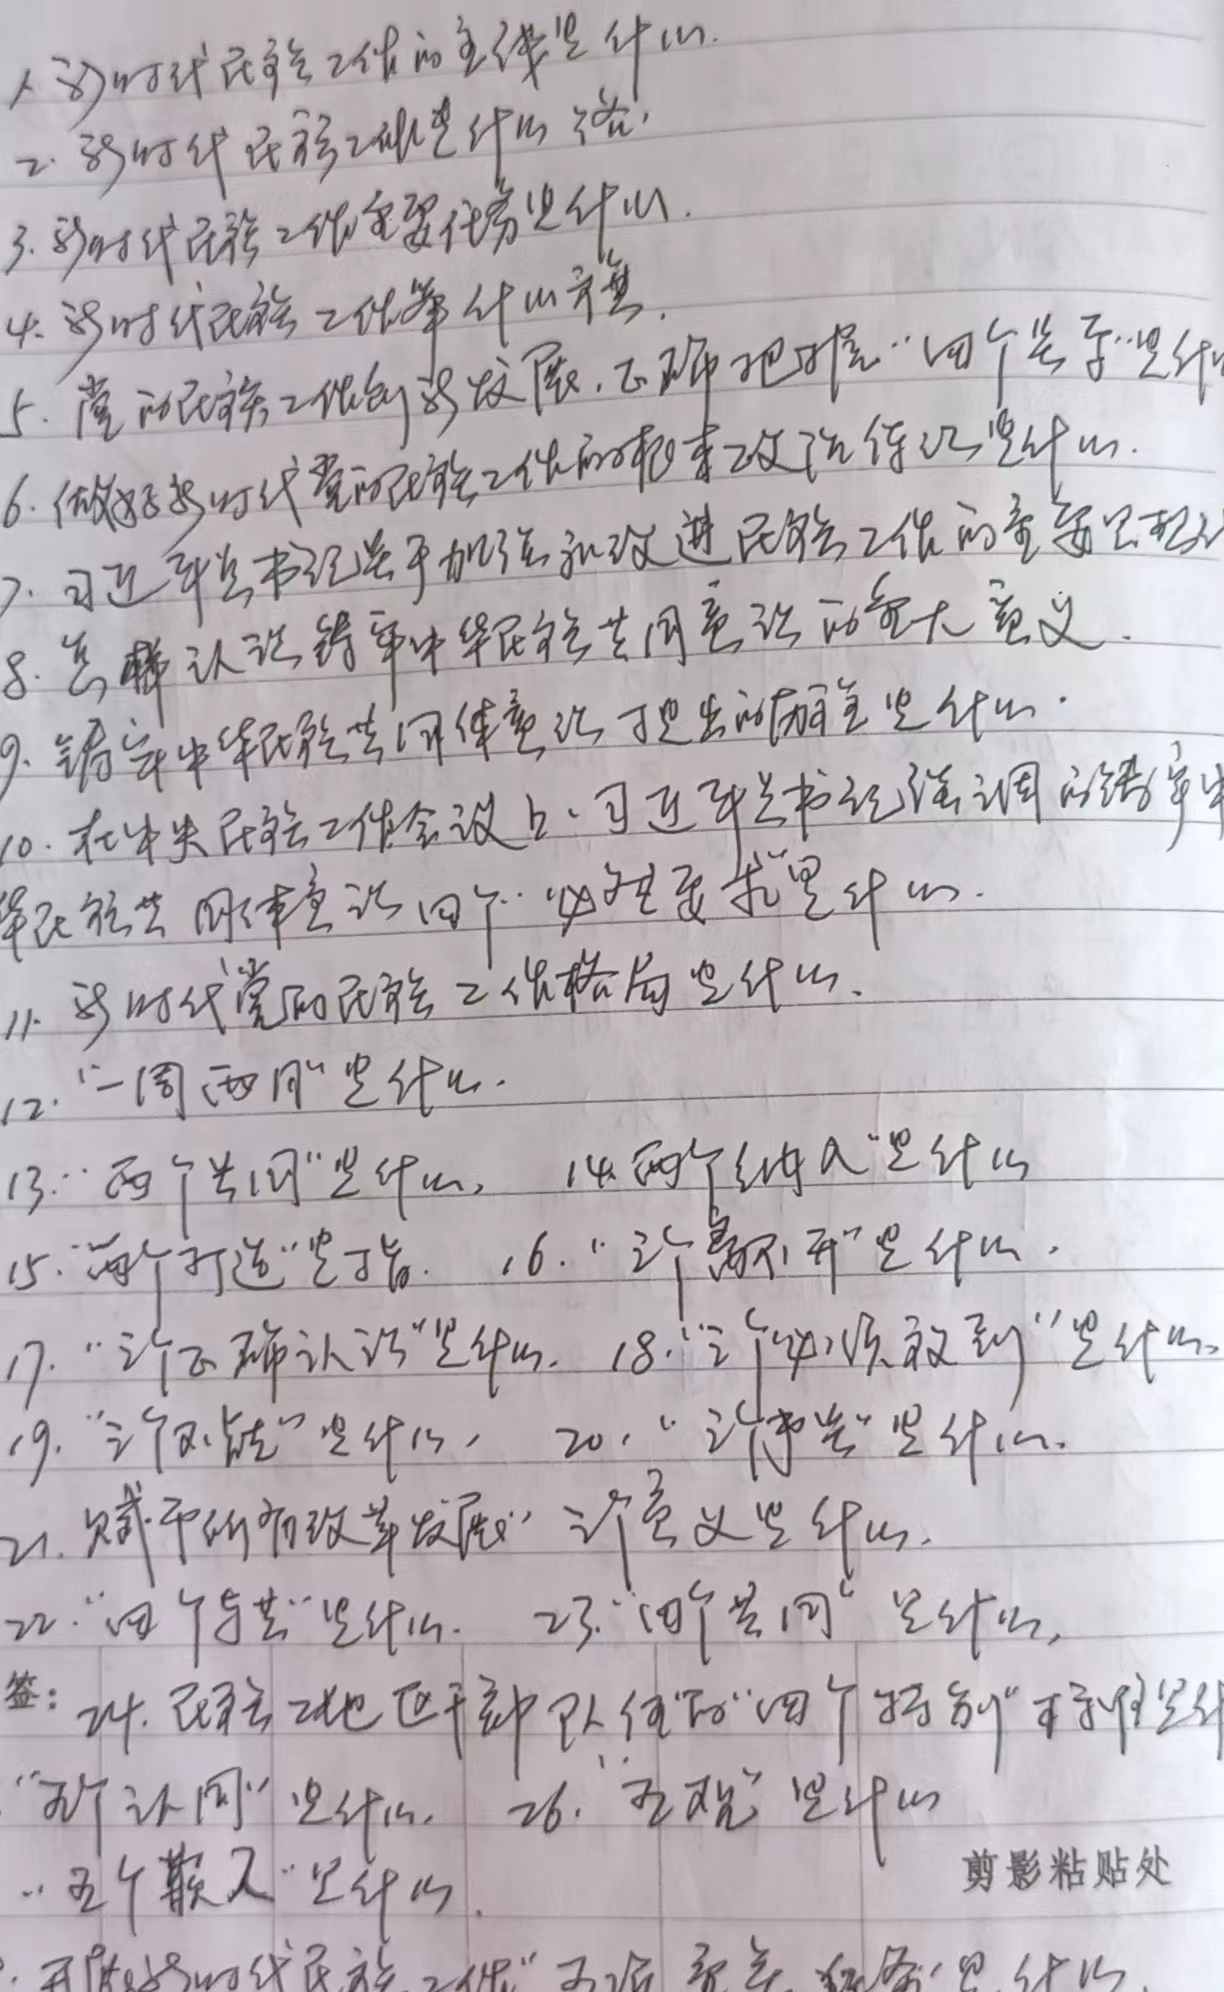 1. 新时代民族工作的主线是什么.
2. 新时代民族工作是什么
3. 新时代民族工作主要任务是什么.
4. 新时代民族工作 什么
5. 党的民族工作创新发展.正确把握“四个关系”是什么
6. 做好新时代党的民族工作的根本政治 是什么.
7. 习近平总书记关于加强和改进民族工作的重要思想
8. 怎样认识铸牢中华民族共同意识的重大意义.
9. 铸牢中华民族共同体意识 提出的 是什么.
10. 在中央民族工作会议上、习近平总书记强调的铸牢中
华民族共同体意识四个“必 要求”是什么.
11. 新时代党的民族工作格局是什么.
12. “一 两 ”是什么.
13. “两个共同”是什么, 14. 两个纳入”是什么
15. “两个打造”是指. 16. “三个离不开”是什么.
17. “三个正确认识”是什么. 18. “三个必须 到”是什么.
19. “三个不 ”是什么, 20. “三个 ”是什么.
21. 赋予所有改革发展“三个意义是什么.
22. “四个与共”是什么. 23. “四个共同”是什么.
签: 24. 民族地区干部队伍的“四个特别”标准是什
“五个认同”是什么. 26. “五观”是什么
“五个 ”是什么.
剪影粘贴处
新时代民族工作“ 是什么.